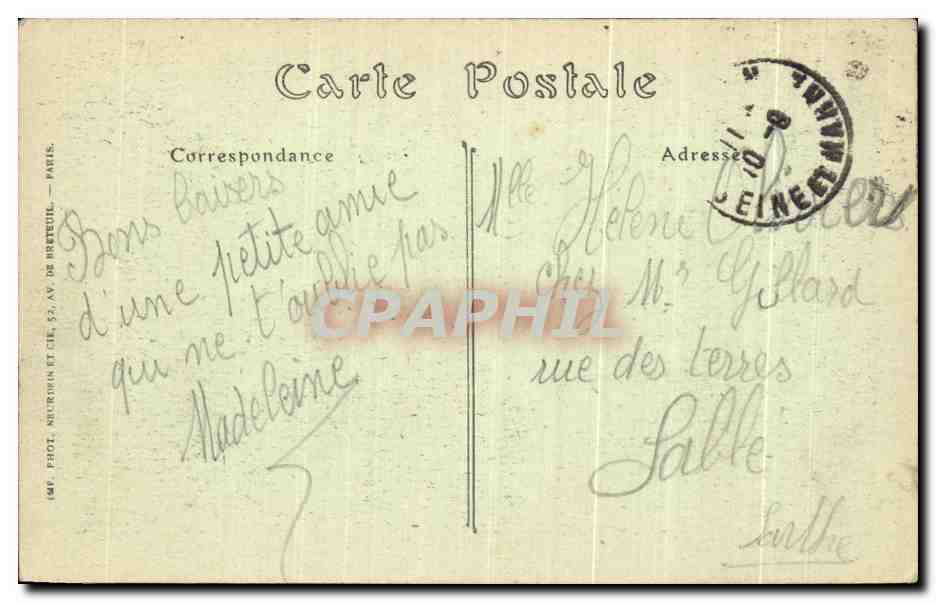 Carte Postale
Correspondance
Bons baisers
d'une petite amie
qui ne t'oublie pas
Madeleine
Adresse
Mlle Hélène
chez Mr Gillard
rue des terres
Sablé
Sarthe
SEINE ET MARNE
CPAPHIL
IMP. PHOT. NEURDEIN ET CIE, 52, AV. DE BRETEUIL. — PARIS.